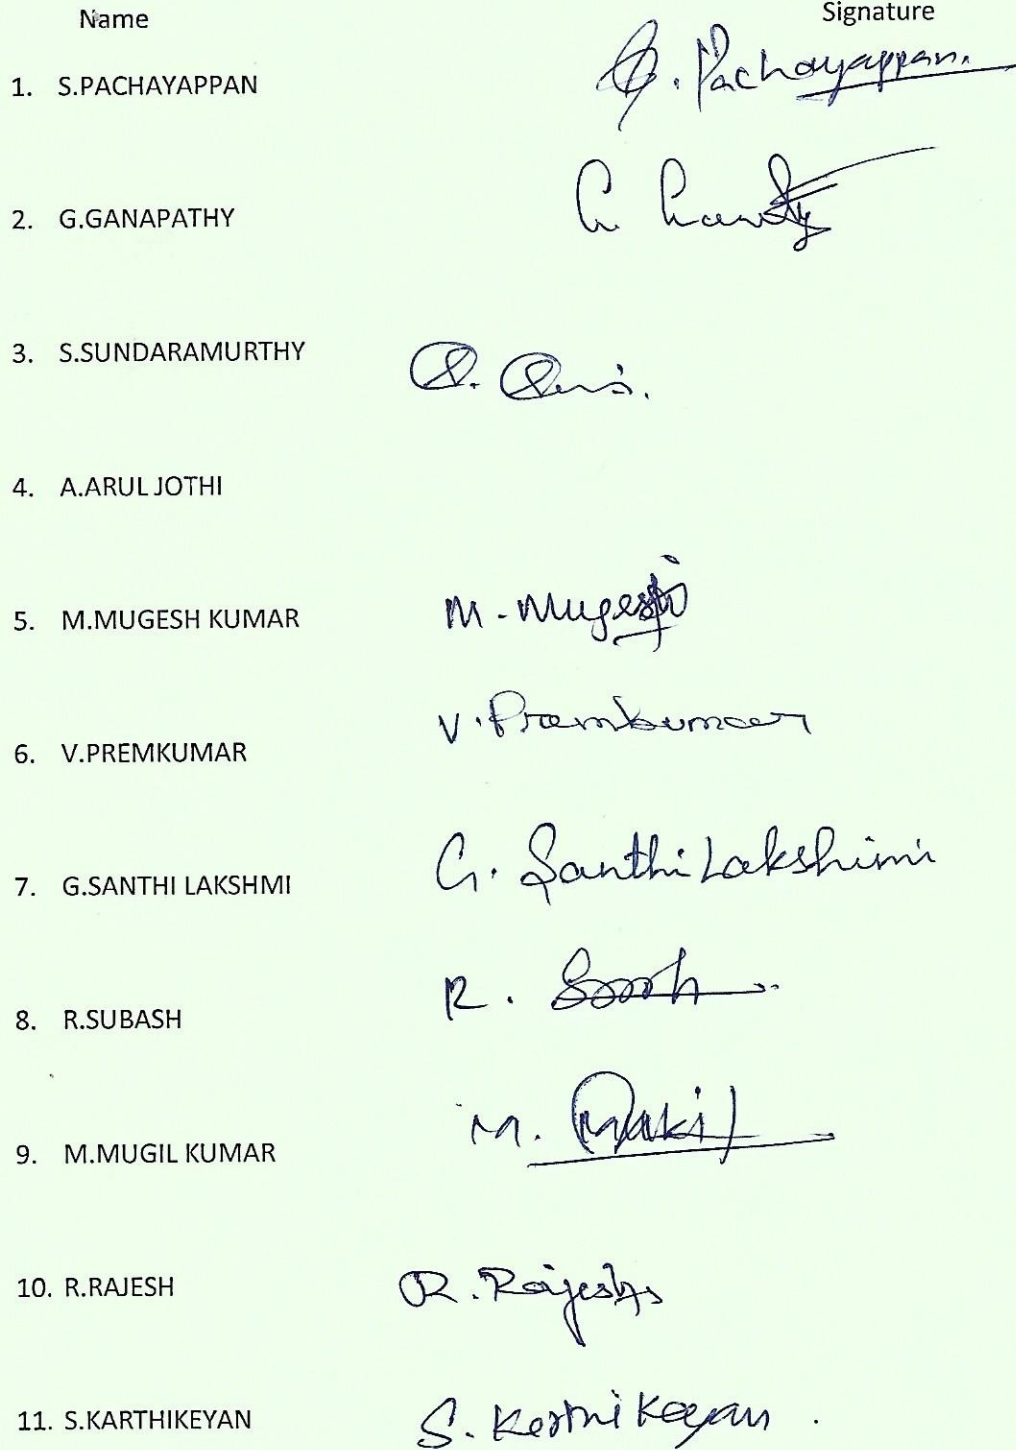 Name Signature
1. S.PACHAYAPPAN S. Pachayappan.
2. G.GANAPATHY G.
3. S.SUNDARAMURTHY S.
4. A.ARUL JOTHI
5. M.MUGESH KUMAR M. Mugesh
6. V.PREMKUMAR V. Premkumar
7. G.SANTHI LAKSHMI G. Santhi Lakshimi
8. R.SUBASH R.
9. M.MUGIL KUMAR M.
10. R.RAJESH R. Rajesh
11. S.KARTHIKEYAN S. Karthikeyan.